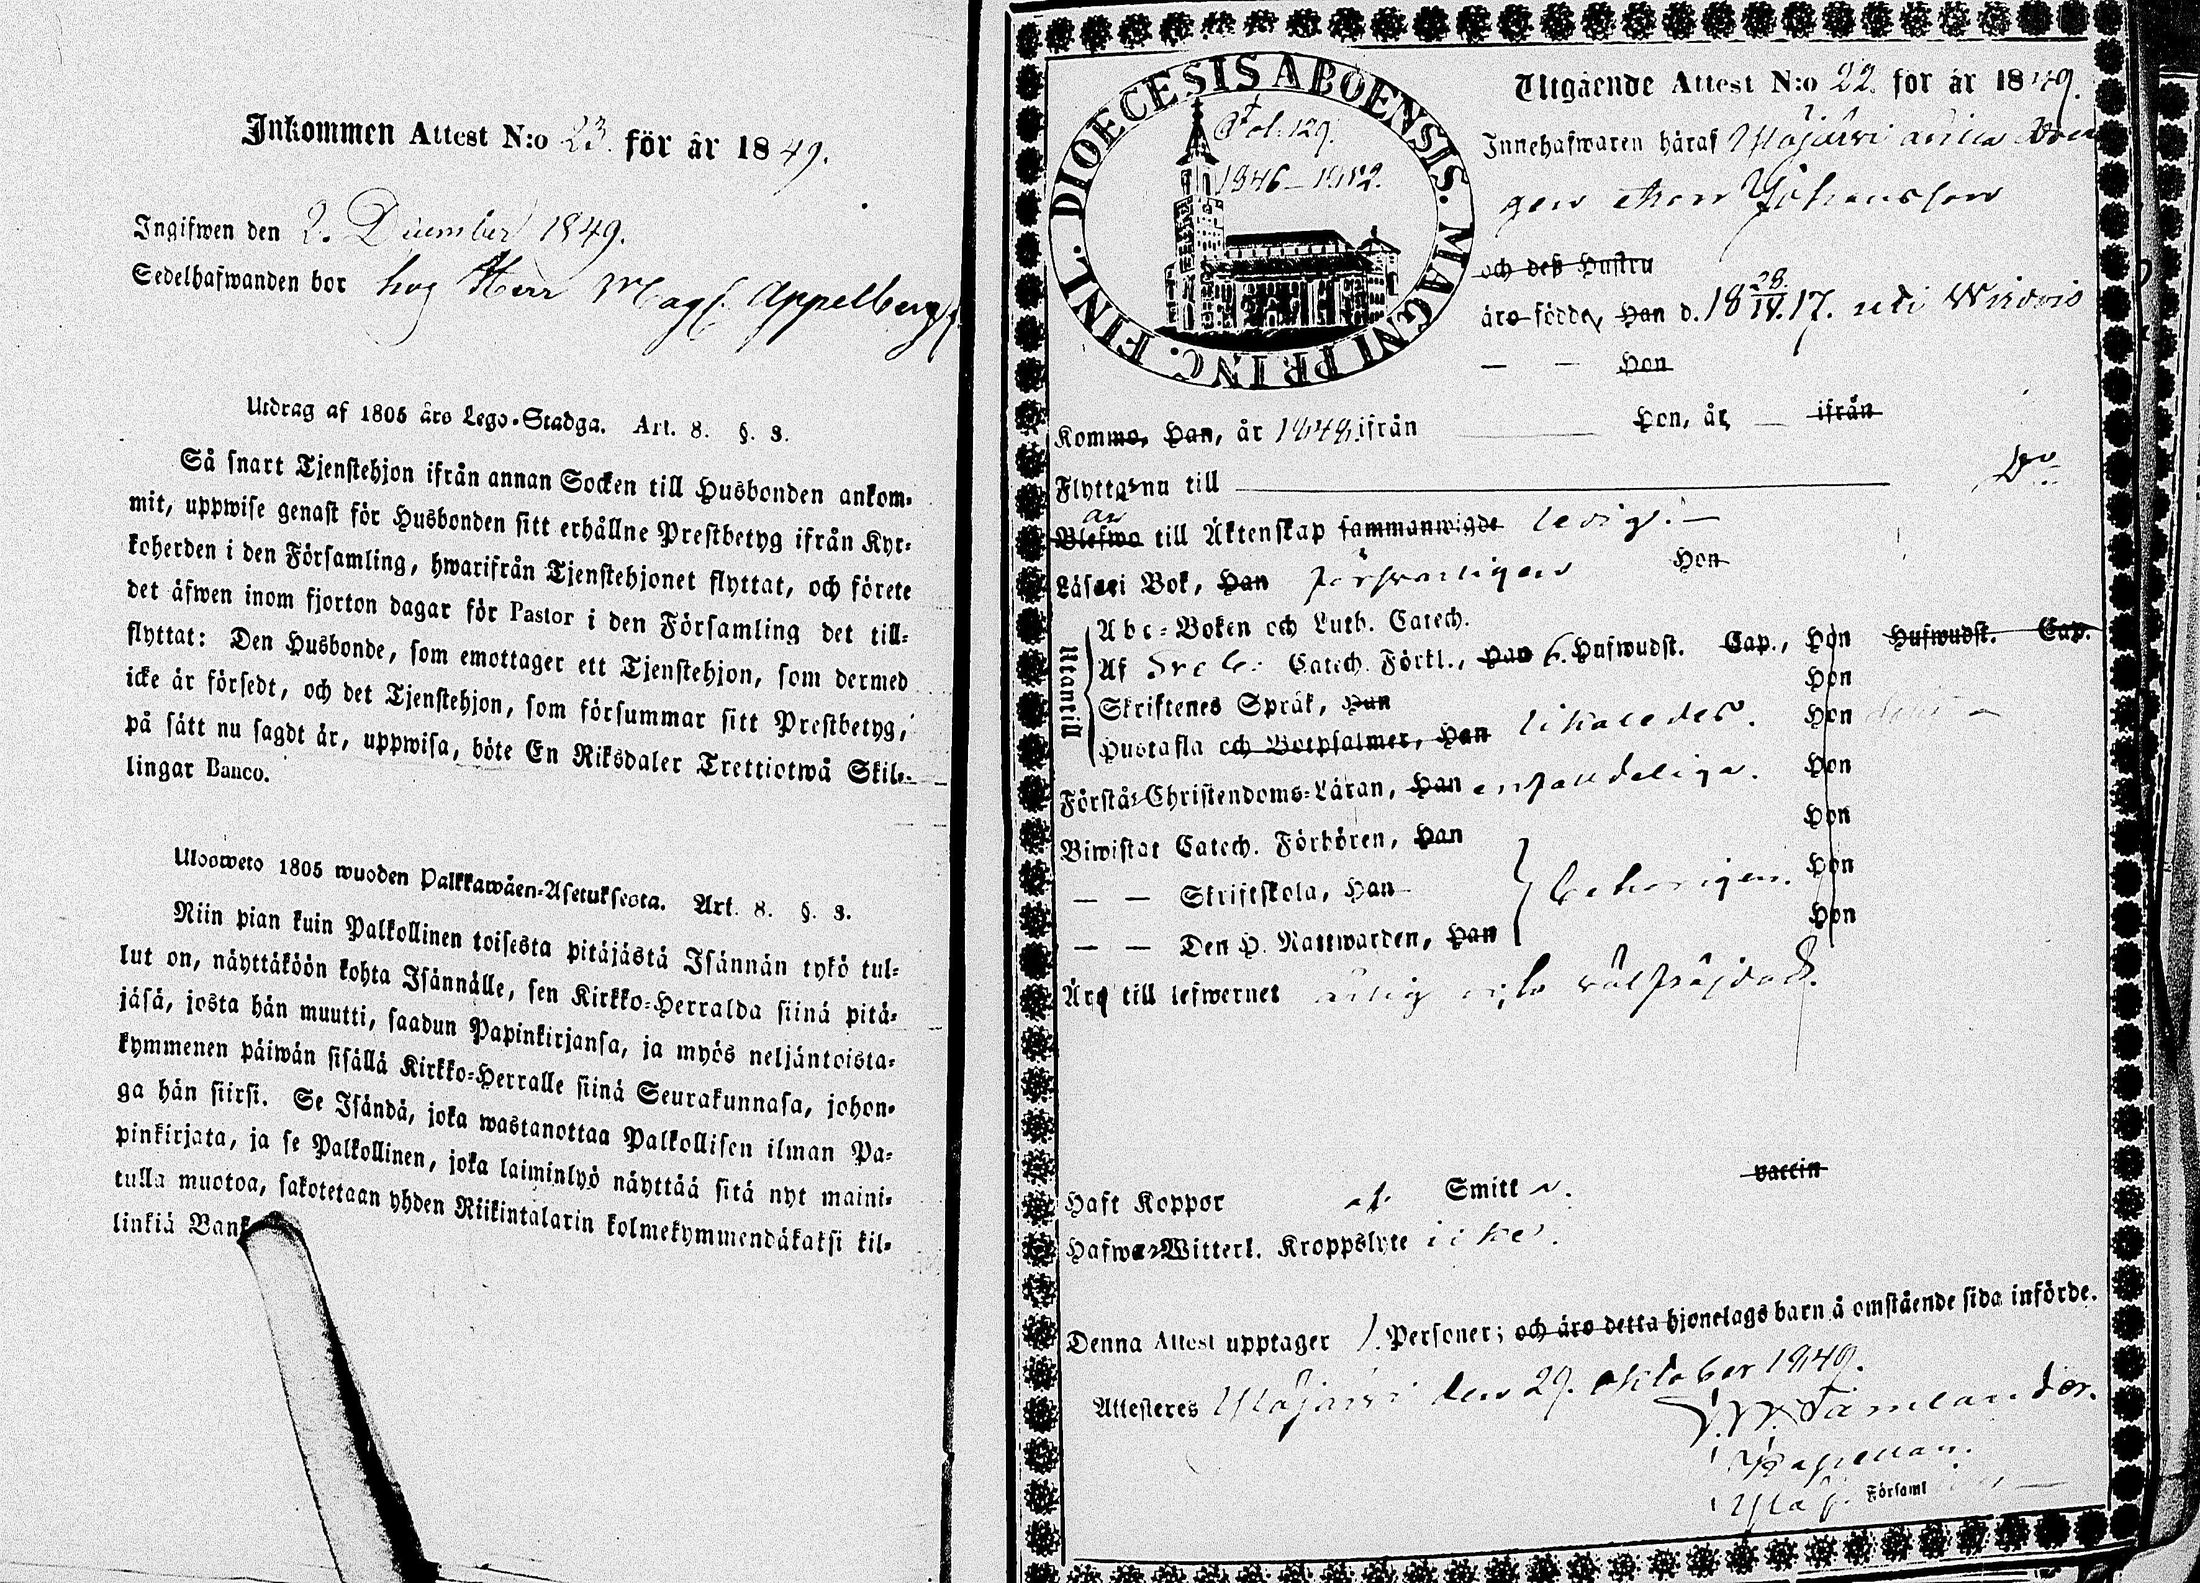 Inkommen Attest N:o 23. för år 1849.
Ingifwen den 2. December 1849.
Sedelhafwanden bor hos Herr Mag. Appelberg
Utdrag af 1805 års Lego-Stadga. Art. 8. §. 3.
Så snart Tjenstehjon ifrån annan Socken till Husbonden ankom-
mit, uppwise genast för Husbonden sitt erhållne Prestbetyg ifrån Kyr-
koherden i den Församling, hwarifrån Tjenstehjonet flyttat, och förete
det äfwen inom fjorton dagar för Pastor i den Församling det till-
flyttat: Den Husbonde, som emottager ett Tjenstehjon, som dermed
icke är försedt, och det Tjenstehjon, som försummar sitt Prestbetyg,
på sätt nu sagdt är, uppwisa, böte En Riksdaler Trettiotwå Skil-
lingar Banco.
Ulosweto 1805 wuoden Palkkawäen-Asetuksesta. Art. 8. §. 3.
Niin pian kuin Palkollinen toisesta pitäjästä Isännän tykö tul-
lut on, näyttäköön kohta Isännälle, sen Kirkko-Herralda siinä pitä-
jäsä, josta hän muutti, saadun Papinkirjansa, ja myös neljäntoista-
kymmenen päiwän sisällä Kirkko-Herralle siinä Seurakunnasa, johon-
ga hän siirsi. Se Isändä, joka wastanottaa Palkollisen ilman Pa-
pinkirjata, ja se Palkollinen, joka laiminlyö näyttää sitä nyt maini-
tulla muotoa, sakotetaan yhden Riikintalarin kolmekymmendäkaksi kil-
linkiä Bank
DIOECESIS ABOENSIS. MAGNI PRINC. FINL.
Fol. 129.
1846–1852.
Utgående Attest N:o 22. för år 1849.
Innehafwaren häraf Ylöjärwi Dren
gen Johansson
och deß Hustru
äro födde, Han d. 18 28/IV. 17. uti
— — Hon
Komme, Han, år 1848 ifrån Hon, år — ifrån
Flyttar nu till Do
Blefwo till Äktenskap sammanwigde ledig. —
är
Läser i Bok, Han försvarligen Hon
Utantill
Abc-Boken och Luth. Catech.
Af Sveb: Catech. Förkl., Han 6. Hufwudst. Cap., Hon Hufwudst. Cap.
Skriftenes Språk, Han Hon
Hustafla och Botpsalmer, Han likaledes. Hon
Förstår Christendoms-Läran, Han enfaldeliga. Hon
Biwistat Catech. Förhören, Han Hon
— — Skriftskola, Han behörigen. Hon
— — Den H. Nattwarden, Han Hon
Äro till lefwernet ärlig och välfräjdad.
Haft Koppor af Smitta. vaccin
Hafwer Witterl. Kroppslyte icke.
Denna Attest upptager 1. Personer; och äro detta hjonelags barn å omstående sida införde.
Attesteres Ylöjärwi den 29. October 1849.
Tämlander.
Kapellan.
Ylöj. Församl